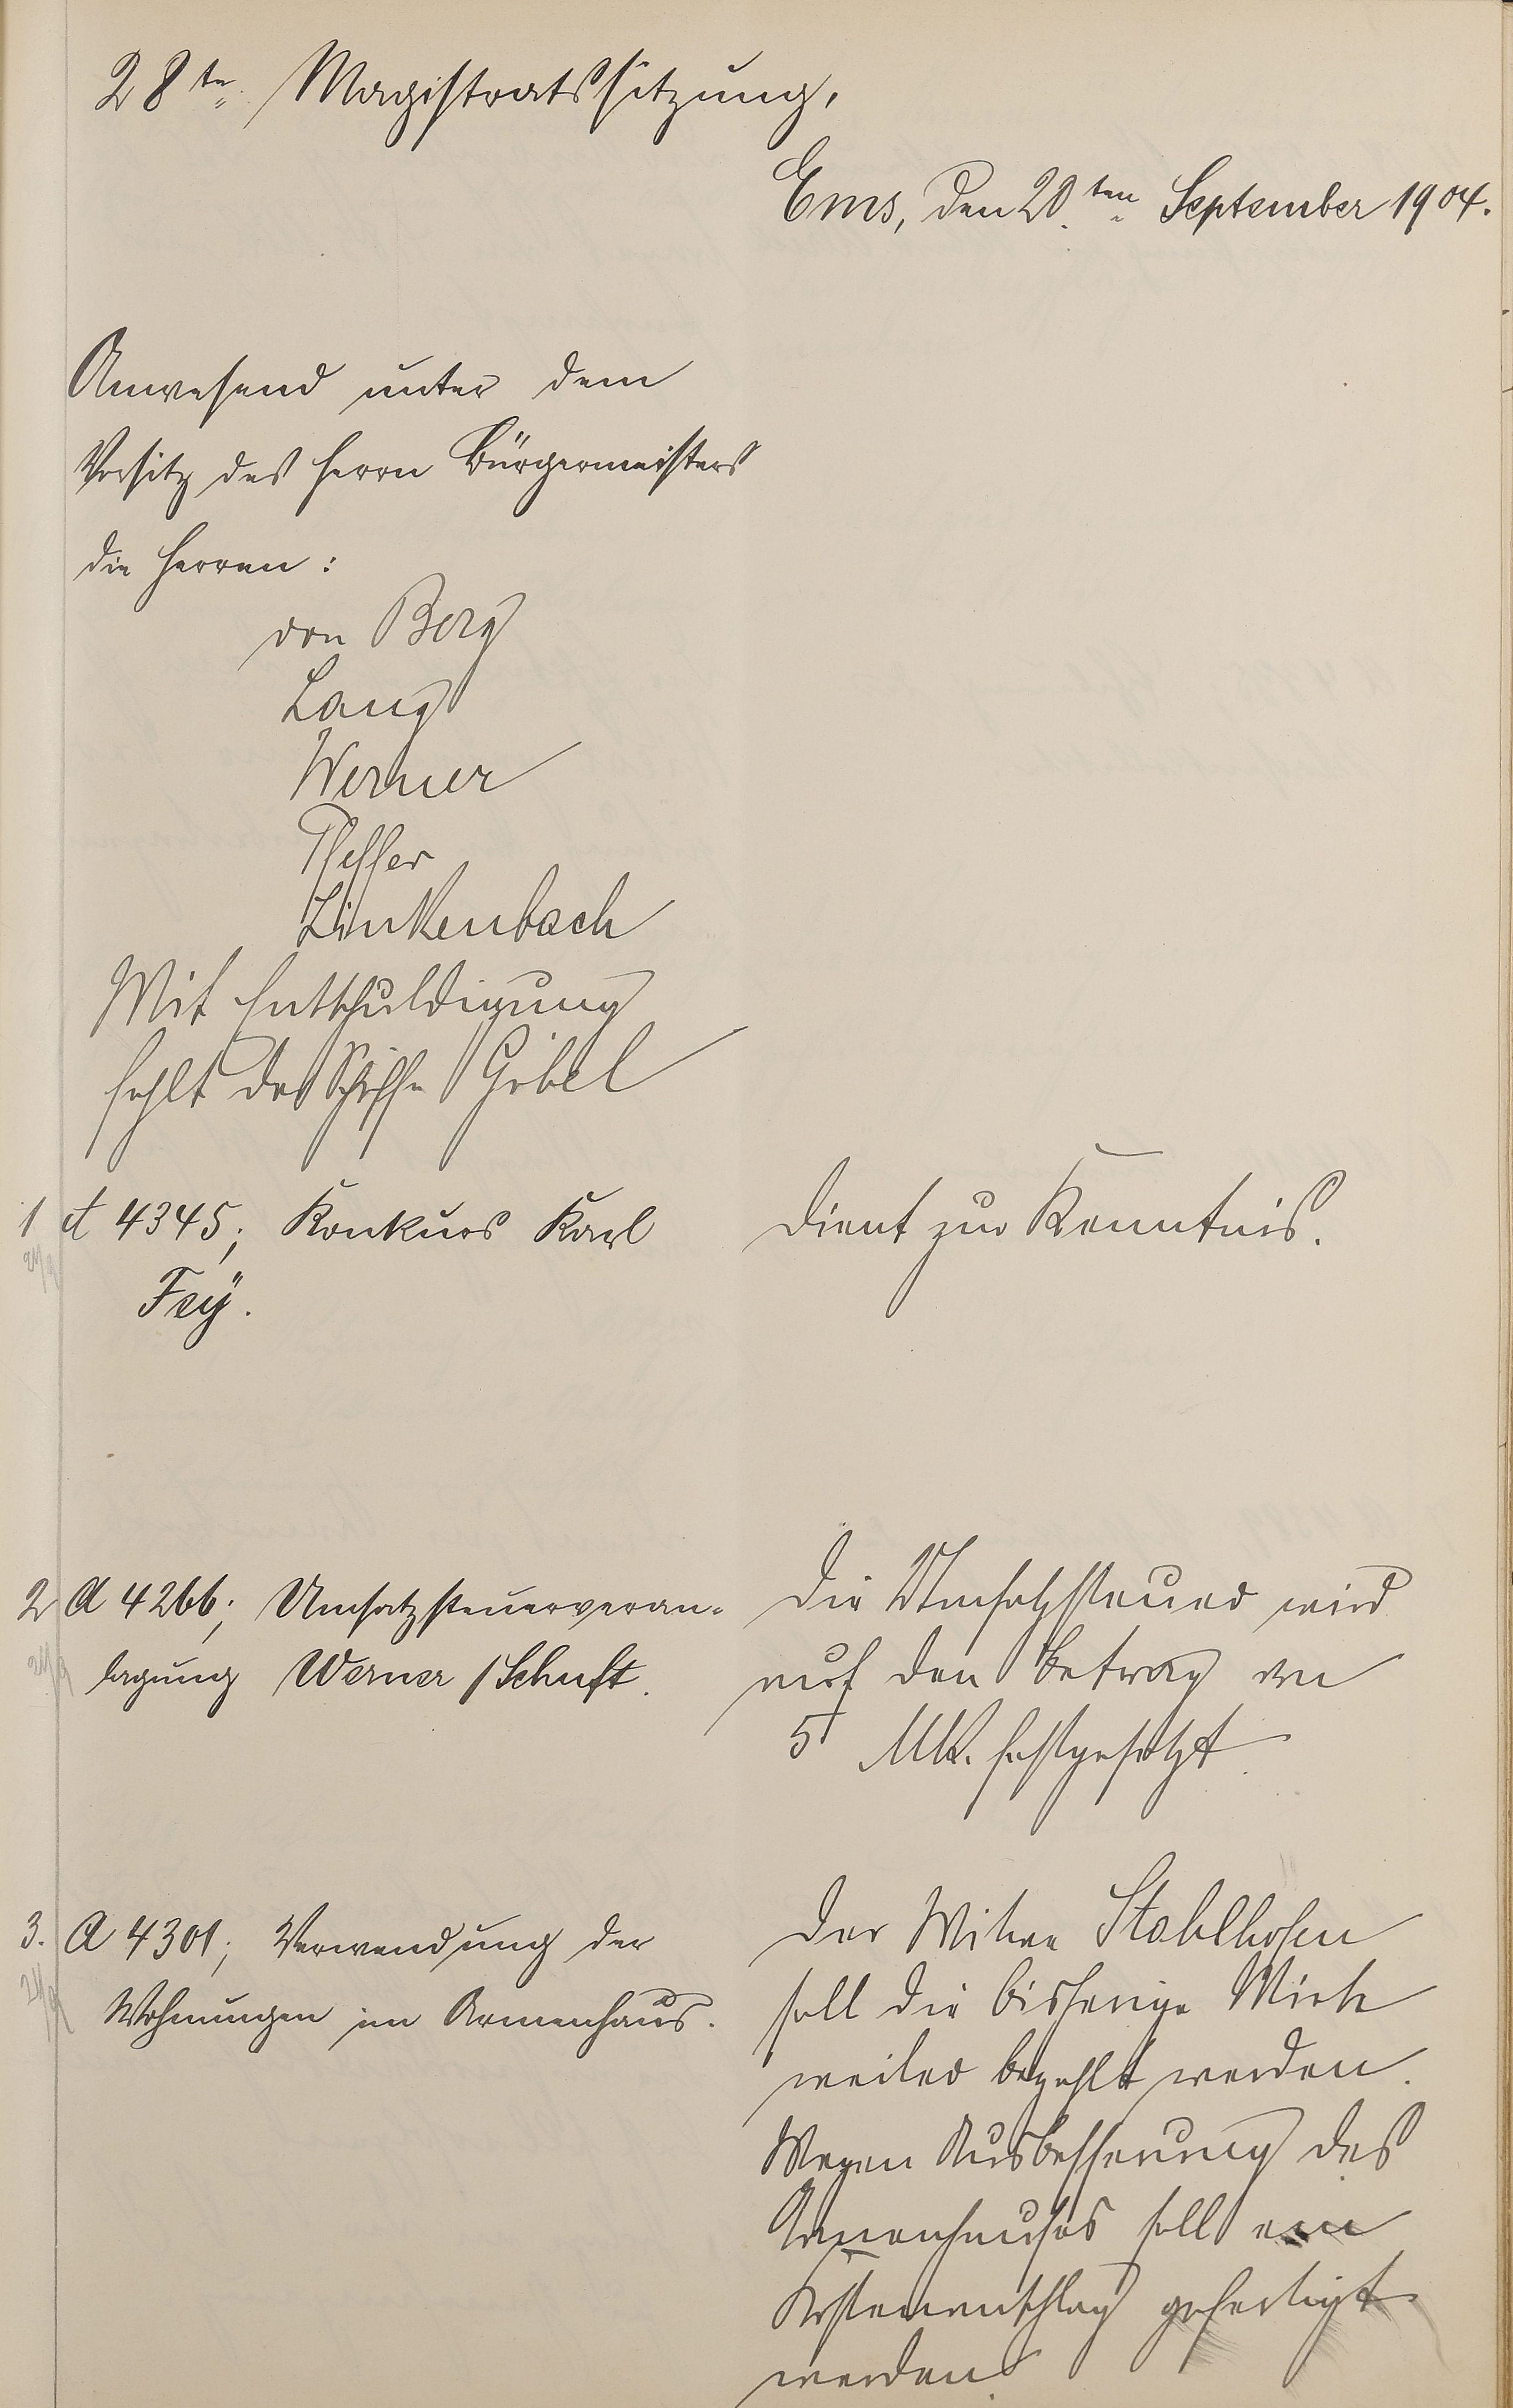 28te Magistratssitzung,
Ems, den 20.ten September 1904.
Anwesend unter dem
Vorsitz des Herrn Bürgermeisters
die Herren:
von Berg
Lang
Werner
Pfeffer
Linkenbach
Mit Entschuldigung
fehlt der Schöffe Göbel
1 A 4345; Konkurs Karl
Fey.
Dient zur Kenntnis.
2 A 4266; Umsatzsteuerveran-
lagung Werner / Schuft.
Die Umsatzsteuer wird
auf den Betrag von
5 Mk. festgesetzt.
3. A 4301; Verwendung der
Wohnungen im Armenhaus.
Der Witwe Stahlhofen
soll die bisherige Miete
weiter bezahlt werden.
Wegen Ausbesserung des
Armenhauses soll ein
Kostenanschlag gefertigt
werden.